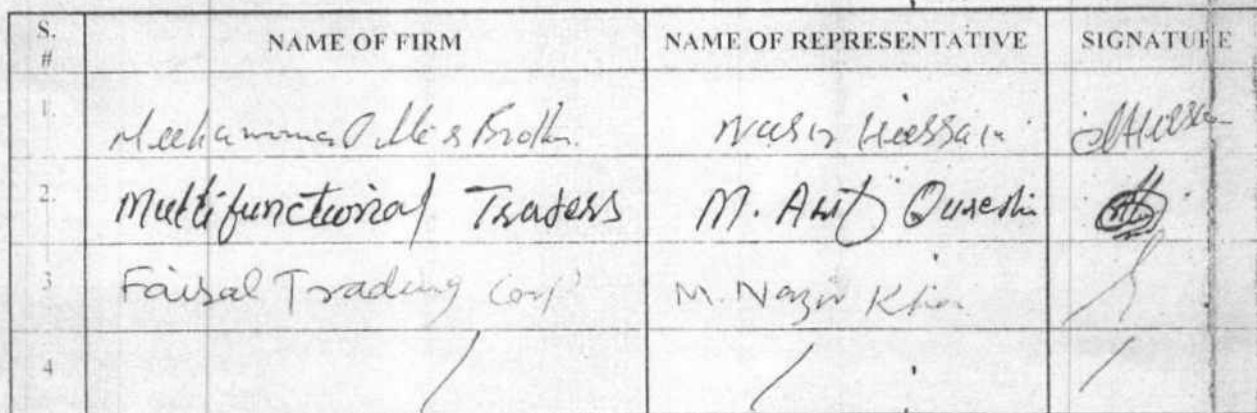 S. # NAME OF FIRM NAME OF REPRESENTATIVE SIGNATURE
1. Muhammad Brothers Nasir Hussain
2. Multifunctional Traders M. Asif Qureshi
3 Faisal Trading Corp M. Nazir Khan
4